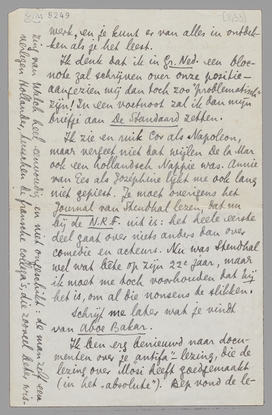 5249
werk, en je kunt er van alles in ontdek-
ken als je het leest.
Ik denk dat ik in Gr. Ned. een bloc-
note zal schrijven over onze positie –
aangezien wij dan toch zoo "problematisch"
zijn! In een voetnoot zal ik dan mijn
briefje aan De Standaard zetten.
Ik zie en ruik Cor als Napoleon,
maar vergeef niet dat wijlen De la Mar
ook een hollandsch Nappie was. Annie
van Ees als Josephine lijkt me ook lang
niet gepiest. Je moet overigens het
Journal van Stendhal lezen, dat nu
bij de N.R.F. uit is: het heele eerste
deel gaat over niets anders dan over
comedie en acteurs. Nu was Stendhal
wel wat bête op zijn 22e jaar, maar
ik moet me toch voorhouden dat hij
het is, om al die nonsens te slikken.
Schrijf me later wat je vindt
van Aboe Bakar.
Ik ben erg benieuwd naar docu-
menten over je antifa-lezing, die de
lezing over Mosi heeft goedgemaakt
(in het "absolute"). Bep vond de le-
zing van Walch heel eenvoudig en niet ongeschikt: de man zelf een
verlegen Hollander, tusschen de fransche collega's, die zooveel beter wis-